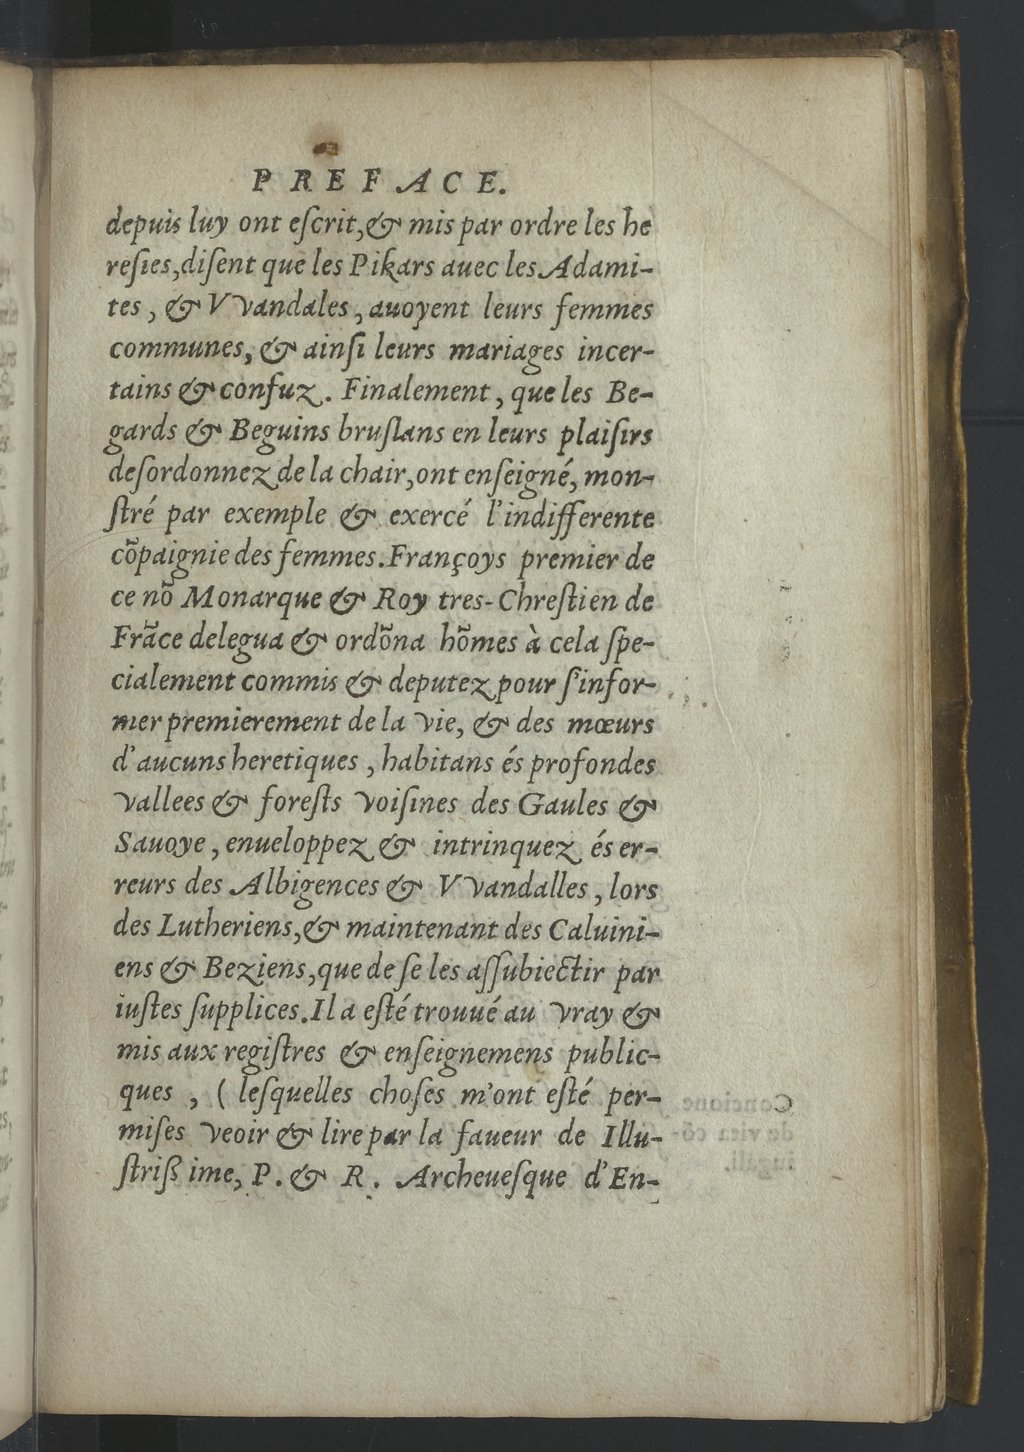 PREFACE.
depuis luy ont eſcrit, & mis par ordre les he
reſies, diſent que les Pikars auec les Adami-
tes, & VVandales, auoyent leurs femmes
communes, & ainſi leurs mariages incer-
tains & confuz. Finalement, que les Be-
gards & Beguins bruſlans en leurs plaiſirs
deſordonnez de la chair, ont enſeigné, mon-
ſtré par exemple & exercé l'indifferente
cõpaignie des femmes. Françoys premier de
ce nõ Monarque & Roy tres-Chreſtien de
Frãce delegua & ordõna hõmes à cela ſpe-
cialement commis & deputez pour ſ'infor-
mer premierement de la vie, & des mœurs
d'aucuns heretiques, habitans és profondes
vallees & foreſts voiſines des Gaules &
Sauoye, enueloppez & intrinquez és er-
reurs des Albigences & VVandalles, lors
des Lutheriens, & maintenant des Caluini-
ens & Beziens, que de ſe les aſſubiectir par
iuſtes ſupplices. Il a eſté trouué au vray &
mis aux regiſtres & enſeignemens public-
ques, (leſquelles choſes m'ont eſté per-
miſes veoir & lire par la faueur de Illu-
ſtriſſime, P. & R. Archeueſque d'En-